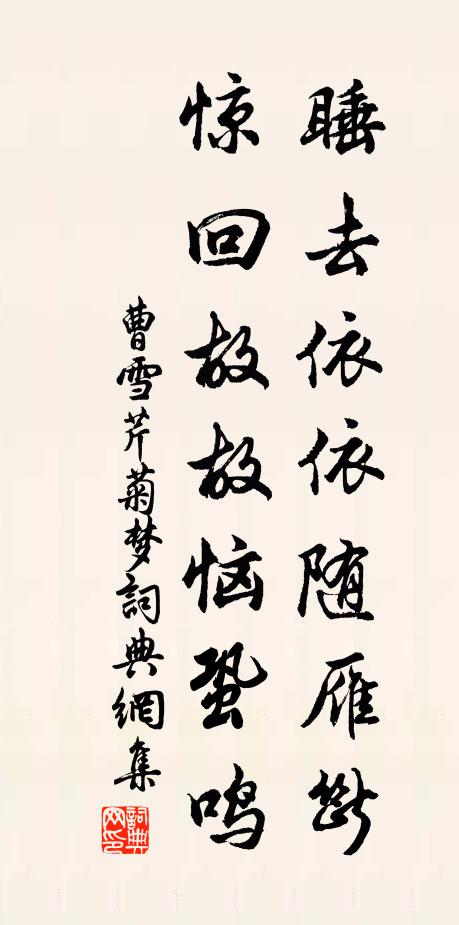 睡去依依随雁断
惊回故故恼蛩鸣
曹雪芹菊梦詞典網集
詞典网印